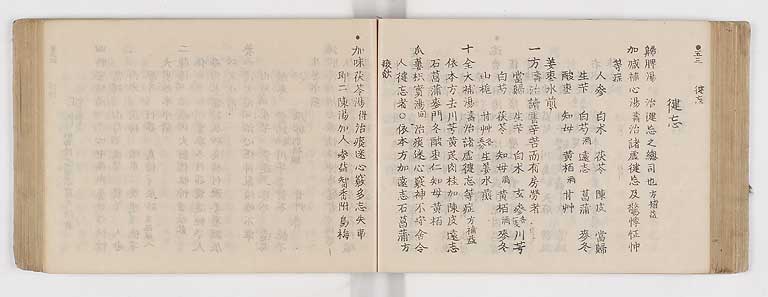 五三 健忘
健忘
歸脾湯 治健忘之總司也方補益
加減補心湯 壽治諸虛健忘及驚悸怔忡
等症
人參 白朮 茯苓 陳皮 當歸
生芐 白芍 遠志 菖蒲 麥冬
酸棗 知母 黃栢 甘艸
姜棗水煎
一方 壽治讀書辛苦而有房勞者
當歸 生芐 白朮 玄參 川芎
白芍 茯苓 知母 黃栢 麥冬
山梔 甘艸 生姜水煎
十全大補湯 壽治諸虛健忘等症方補益
依本方去川芎黃芪肉桂加陳皮遠志
石菖蒲麥門冬酸棗仁知母黃栢
瓜蔞枳實湯 治痰迷心竅神不守舍令
人健忘者○依本方加遠志石菖蒲方
痰飲
加味茯苓湯 治痰迷心竅多忘失事
即二陳湯加人參益智香附烏梅